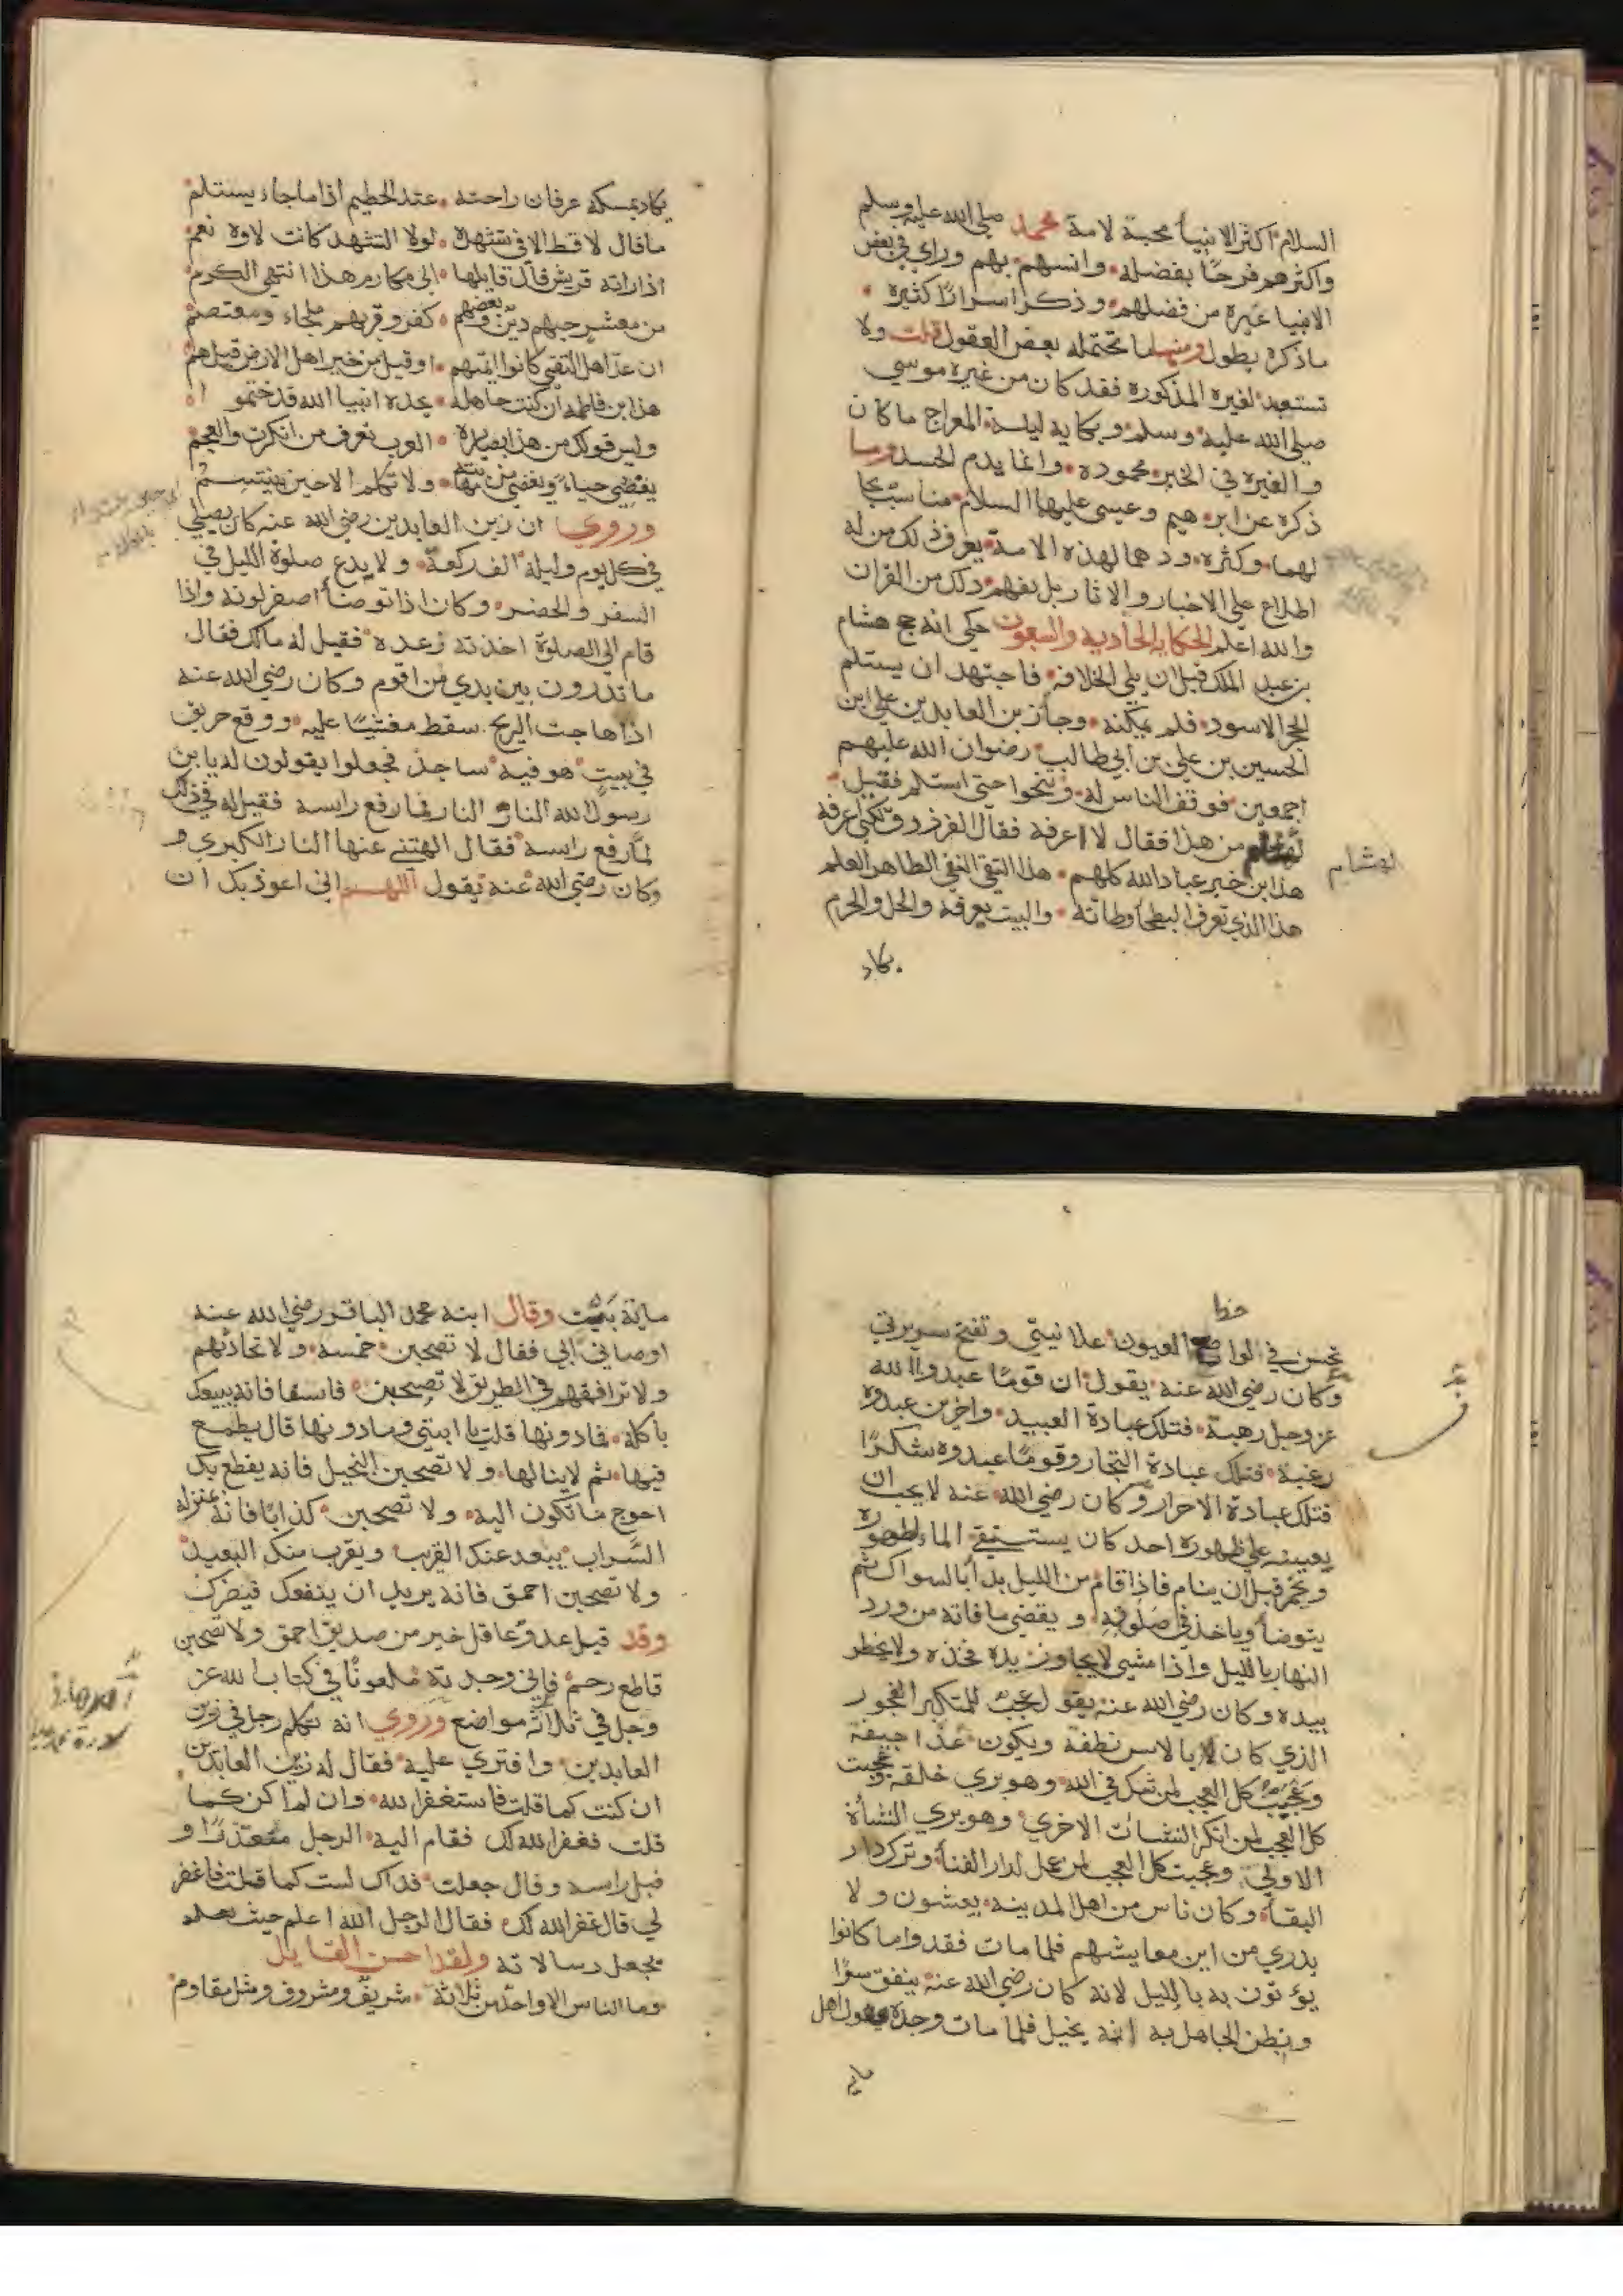 السلام اكثر الانبيا محبة لامة محمد صلى الله عليه وسلم
واكثرهم فرحًا بفضله وانسهم بهم وراي في بعض
الانبيا غيرة من فضلهم وذكر اسرارًا كثيرة
ماذكره يطول ومنها ما تحتمله بعض العقول قلت ولا
تستبعد لغيره المذكورة فقد كان من غيرة موسي
صلي الله عليه وسلم وبكايه ليلة المعراج ما كان
والغيرة في الخير محموده وانما يذم الحسد وما
ذكره عن ابرهيم وعيسي عليهما السلام مناسب
لهما وكثرة ودهما لهذه الامة يعرف ذلك من له
اطلاع علي الاخبار والاثار بل يفهم ذلك من القران
والله اعلم الحكاية الحادية والسبعون حكي انه حج هشام
بن عبد الملك قبل ان يلي الخلافة فاجتهد ان يستلم
الحجر الاسود فلم يمكنه وجا زين العابدين علي ابن
الحسين بن علي بن ابي طالب رضوان الله عليهم
اجمعين فوقف الناس له وتنحوا حتى استلم فقيل
لهشام من هذا فقال لا اعرفه فقال الفرزدق لكني اعرفه
لهشام
هذا ابن خير عباد الله كلهم هذا التقي النقي الطاهر العلم
هذا الذي تعرف البطحا وطاته والبيت يعرفه والحل والحرم
يكاد
يكاد يمسكه عرفان راحته عند الحطيم اذا ما جاء يستلم
ما قال لا قط الا في تشهده لولا التشهد كانت لاوه نعم
اذا راته قريش قال قايلها الى مكارم هذا انتهى الكرم
من معشر حبهم دين وبغضهم كفر وقربهم ملجاء ومعتصم
ان عد اهل التقى كانوا ايمتهم او قيل من خير اهل الارض قيل هم
هذا ابن فاطمه ان كنت جاهله بجده انبيا الله قد ختموا
وليس قولك من هذا بضايره العرب تعرف من انكرت والعجم
يغضي حياءً ويغضى من مهابته ولا تكلم الا حين يبتسم
وروي ان زين العابدين رضي الله عنه كان يصلي
في كل يوم وليلة الف ركعة ولا يدع صلوة الليل في
السفر والحضر وكان اذا توضا اصفر لونه واذا
قام الى الصلوة اخذته رعده فقيل له مالك فقال
ما تدرون بين يدي من اقوم وكان رضي الله عنه
اذا هاجت الريح سقط مغشيًا عليه ووقع حريق
في بيت هو فيه ساجد فجعلوا يقولون له يا بن
رسول الله النار النار فما رفع راسه فقيل له في ذلك
لما رفع راسه فقال الهتني عنها النار الكبري
وكان رضي الله عنه يقول اللهم اني اعوذ بك ان
تحسن في لوامع العيون علانيتي وتقبح سريرتي
وكان رضي الله عنه يقول ان قومًا عبدوا الله
عز وجل رهبة فتلك عبادة العبيد واخرين عبدوه
رغبة فتلك عبادة التجار وقومًا عبدوه شكرًا
فتلك عبادة الاحرار وكان رضي الله عنه لا يحب ان
يعينه علي طهوره احد كان يستقي الماء لطهوره
ويخمر قبل ان ينام فاذا قام من الليل بدا بالسواك ثم
يتوضأ وياخذ في صلوته ويقضي ما فاته من ورد
النهار بالليل واذا مشي لا يجاوز يده فخذه ولا يخطر
بيده وكان رضي الله عنه يقول عجبت للمتكبر الفخور
الذي كان بالامس نطفة ويكون غدًا جيفة
وعجبت كل العجب لمن شك في الله وهو يري خلقه وعجبت
كل العجب لمن انكر النشات الاخري وهو يري النشاة
الاولي وعجبت كل العجب لمن عمل لدار الفنا وترك دار
البقا وكان ناس من اهل المدينه يعيشون ولا
يدري من اين معايشهم فلما مات فقدوا ما كانوا
يؤتون به بالليل لانه كان رضي الله عنه ينفق سرًا
ويظن الجاهل به انه بخيل فلما مات وجدوه يقول اهل
ماية
ماية بيت وقال ابنه محمد الباقر رضي الله عنه
اوصاني ابي فقال لا تصحبن خمسه ولا تحادثهم
ولا ترافقهم في الطريق لا تصحبن فاسقا فانه يبيعك
باكلة فما دونها قلت يا ابتي وما دونها قال يطمع
فيها ثم لا ينالها ولا تصحبن البخيل فانه يقطع بك
احوج ما تكون اليه ولا تصحبن كذابًا فانه بمنزلة
السراب يبعد عنك القريب ويقرب منك البعيد
ولا تصحبن احمق فانه يريد ان ينفعك فيضرك
وقد قيل عدو عاقل خير من صديق احمق ولا تصحبن
قاطع رحم فاني وجدته ملعونًا في كتاب الله عز
وجل في ثلاثة مواضع وروي انه تكلم رجل في زين
العابدين وافتري عليه فقال له زين العابدين
ان كنت كما قلت فاستغفر الله وان لم اكن كما
قلت فغفر الله لك فقام اليه الرجل معتذرًا و
قبل راسه وقال جعلت فداك لست كما قلت فاغفر
لي قال غفر الله لك فقال الرجل الله اعلم حيث
يجعل رسالاته ولقد احسن القايل
وما الناس الا واحد من ثلاثة شريف ومشروف ومثل مقاوم